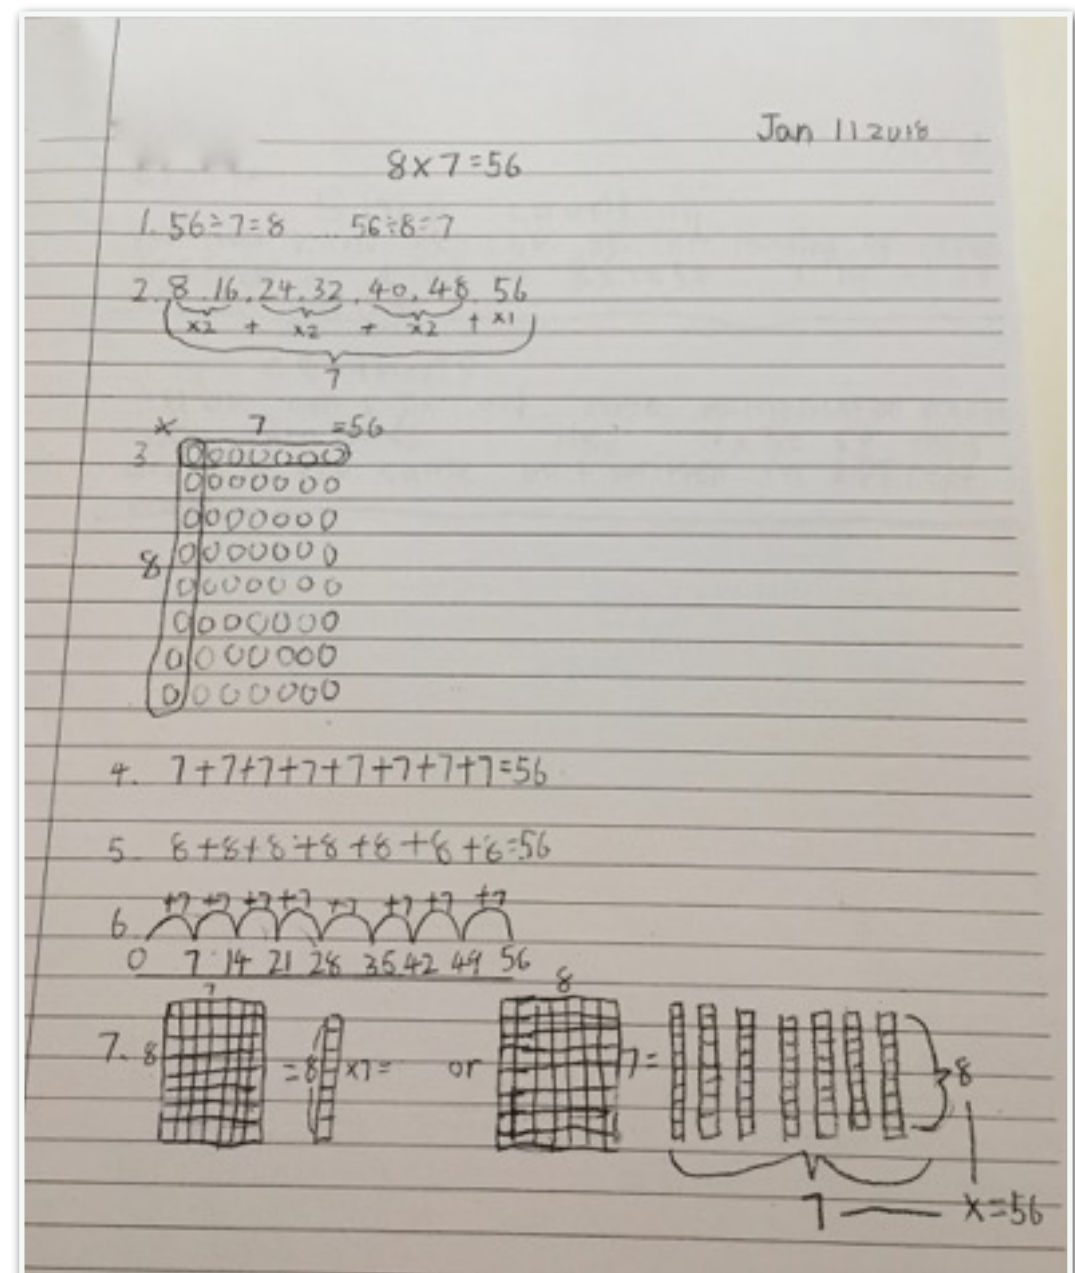 Jan 11 2018
8×7=56
1. 56÷7=8 ... 56÷8=7
2. 8, 16, 24, 32, 40, 48, 56
×2 + ×2 + ×2 + ×1
7
× 7 =56
3
8
4. 7+7+7+7+7+7+7+7=56
5. 8+8+8+8+8+8+8=56
+7 +7 +7 +7 +7 +7 +7 +7
6.
0 7 14 21 28 35 42 49 56
7 8
7. 8 =8 ×7= or 7= 8
7 × =56